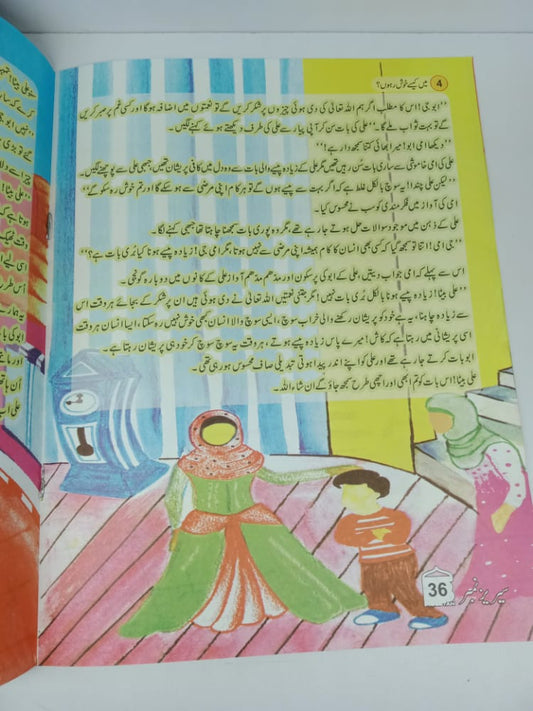 4 میں کیسے خوش رہوں؟
"ابو جی! اس کا مطلب اگر ہم اللہ تعالیٰ کی دی ہوئی چیزوں پر شکر کریں گے تو نعمتوں میں اضافہ ہوگا اور کسی غم پر صبر کریں
گے تو بہت ثواب ملے گا۔" علی کی بات سن کر آپی پیار سے علی کی طرف دیکھتے ہوئے کہنے لگیں۔
"دیکھا امی ابو! میرا بھائی کتنا سمجھ دار ہے!"
علی کی امی خاموشی سے ساری بات سُن رہیں تھیں مگر علی کے زیادہ پیسے والی بات سے وہ دل میں کافی پریشان تھیں، جبھی علی سے پوچھنے لگیں۔
"لیکن علی چندا! یہ سوچ بالکل غلط ہے کہ اگر بہت سے پیسے ہوں گے تو ہر کام اپنی مرضی سے ہو سکے گا اور تم خوش رہ سکو گے"
امی کی آواز میں فکر مندی کو سب نے محسوس کیا۔
علی کے ذہن میں موجود سوالات حل ہوتے جا رہے تھے، مگر وہ پوری بات سمجھنا چاہتا تھا جبھی کہنے لگا۔
"جی امی! اتنا تو سمجھ گیا کہ کسی بھی انسان کا کام ہمیشہ اپنی مرضی سے نہیں ہوتا مگر امی جی! زیادہ پیسے ہونا کیا بُری بات ہے؟"
اس سے پہلے کہ امی جواب دیتیں، علی کے ابو کی پر سکون اور مدھم مدھم آواز علی کے کانوں میں دوبارہ گونجی۔
"علی بیٹا! زیادہ پیسے ہونا بالکل بُری بات نہیں! مگر جتنی نعمتیں اللہ تعالیٰ نے دی ہوئی ہیں ان پر شکر کے بجائے ہر وقت اس
سے زیادہ چاہنا، یہ ہے خود کو پریشان رکھنے والی خراب سوچ، ایسی سوچ والا انسان کبھی خوش نہیں رہ سکتا، ایسا انسان ہر وقت
اسی پریشانی میں رہتا ہے کہ کاش! میرے پاس زیادہ پیسے ہوتے، ہر وقت یہ سوچ سوچ کر خود ہی پریشان رہتا ہے۔
ابو بات کرتے جا رہے تھے اور علی کو اپنے اندر پیدا ہوتی تبدیلی صاف محسوس ہو رہی تھی۔
علی بیٹا! اس بات کو تم ابھی اور اچھی طرح سمجھ جاؤ گے ان شاء اللہ۔
36
سیریز نمبر